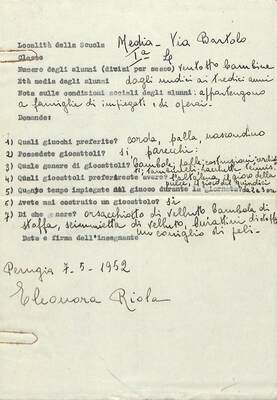 Località della Scuola Media - Via Bartolo
Classe Iª
Numero degli alunni (divisi per sesso) ventotto bambine
Età media degli alunni dagli undici ai tredici anni
Nota sulle condizioni sociali degli alunni: appartengono
a famiglie di impiegati e di operai.
Domande:
1) Quali giuochi preferite? corda, palla, nascondino
2) Possedete giocattoli? si, parecchi:
3) Quale genere di giocattoli? bambole, palla, costruzioni,
si, tamburelli,
4) Quali giocattoli preferireste avere? l'altalena, il gioco della
pulce, il gioco dei quindici
5) Quanto tempo impiegate nel giuoco durante la giornata?
6) Avete mai costruito un giocattolo? si
7) Di che genere? orsacchiotto di velluto, bambola di
stoffa, scimmietta di velluto, burattini di stoffa
un coniglio di peli.
Data e firma dell'insegnante
Perugia 7-5-1952
Eleonora Riola